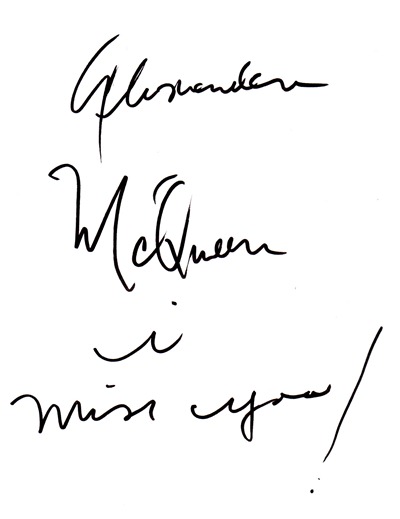 Alexander
McQueen
i
miss you!